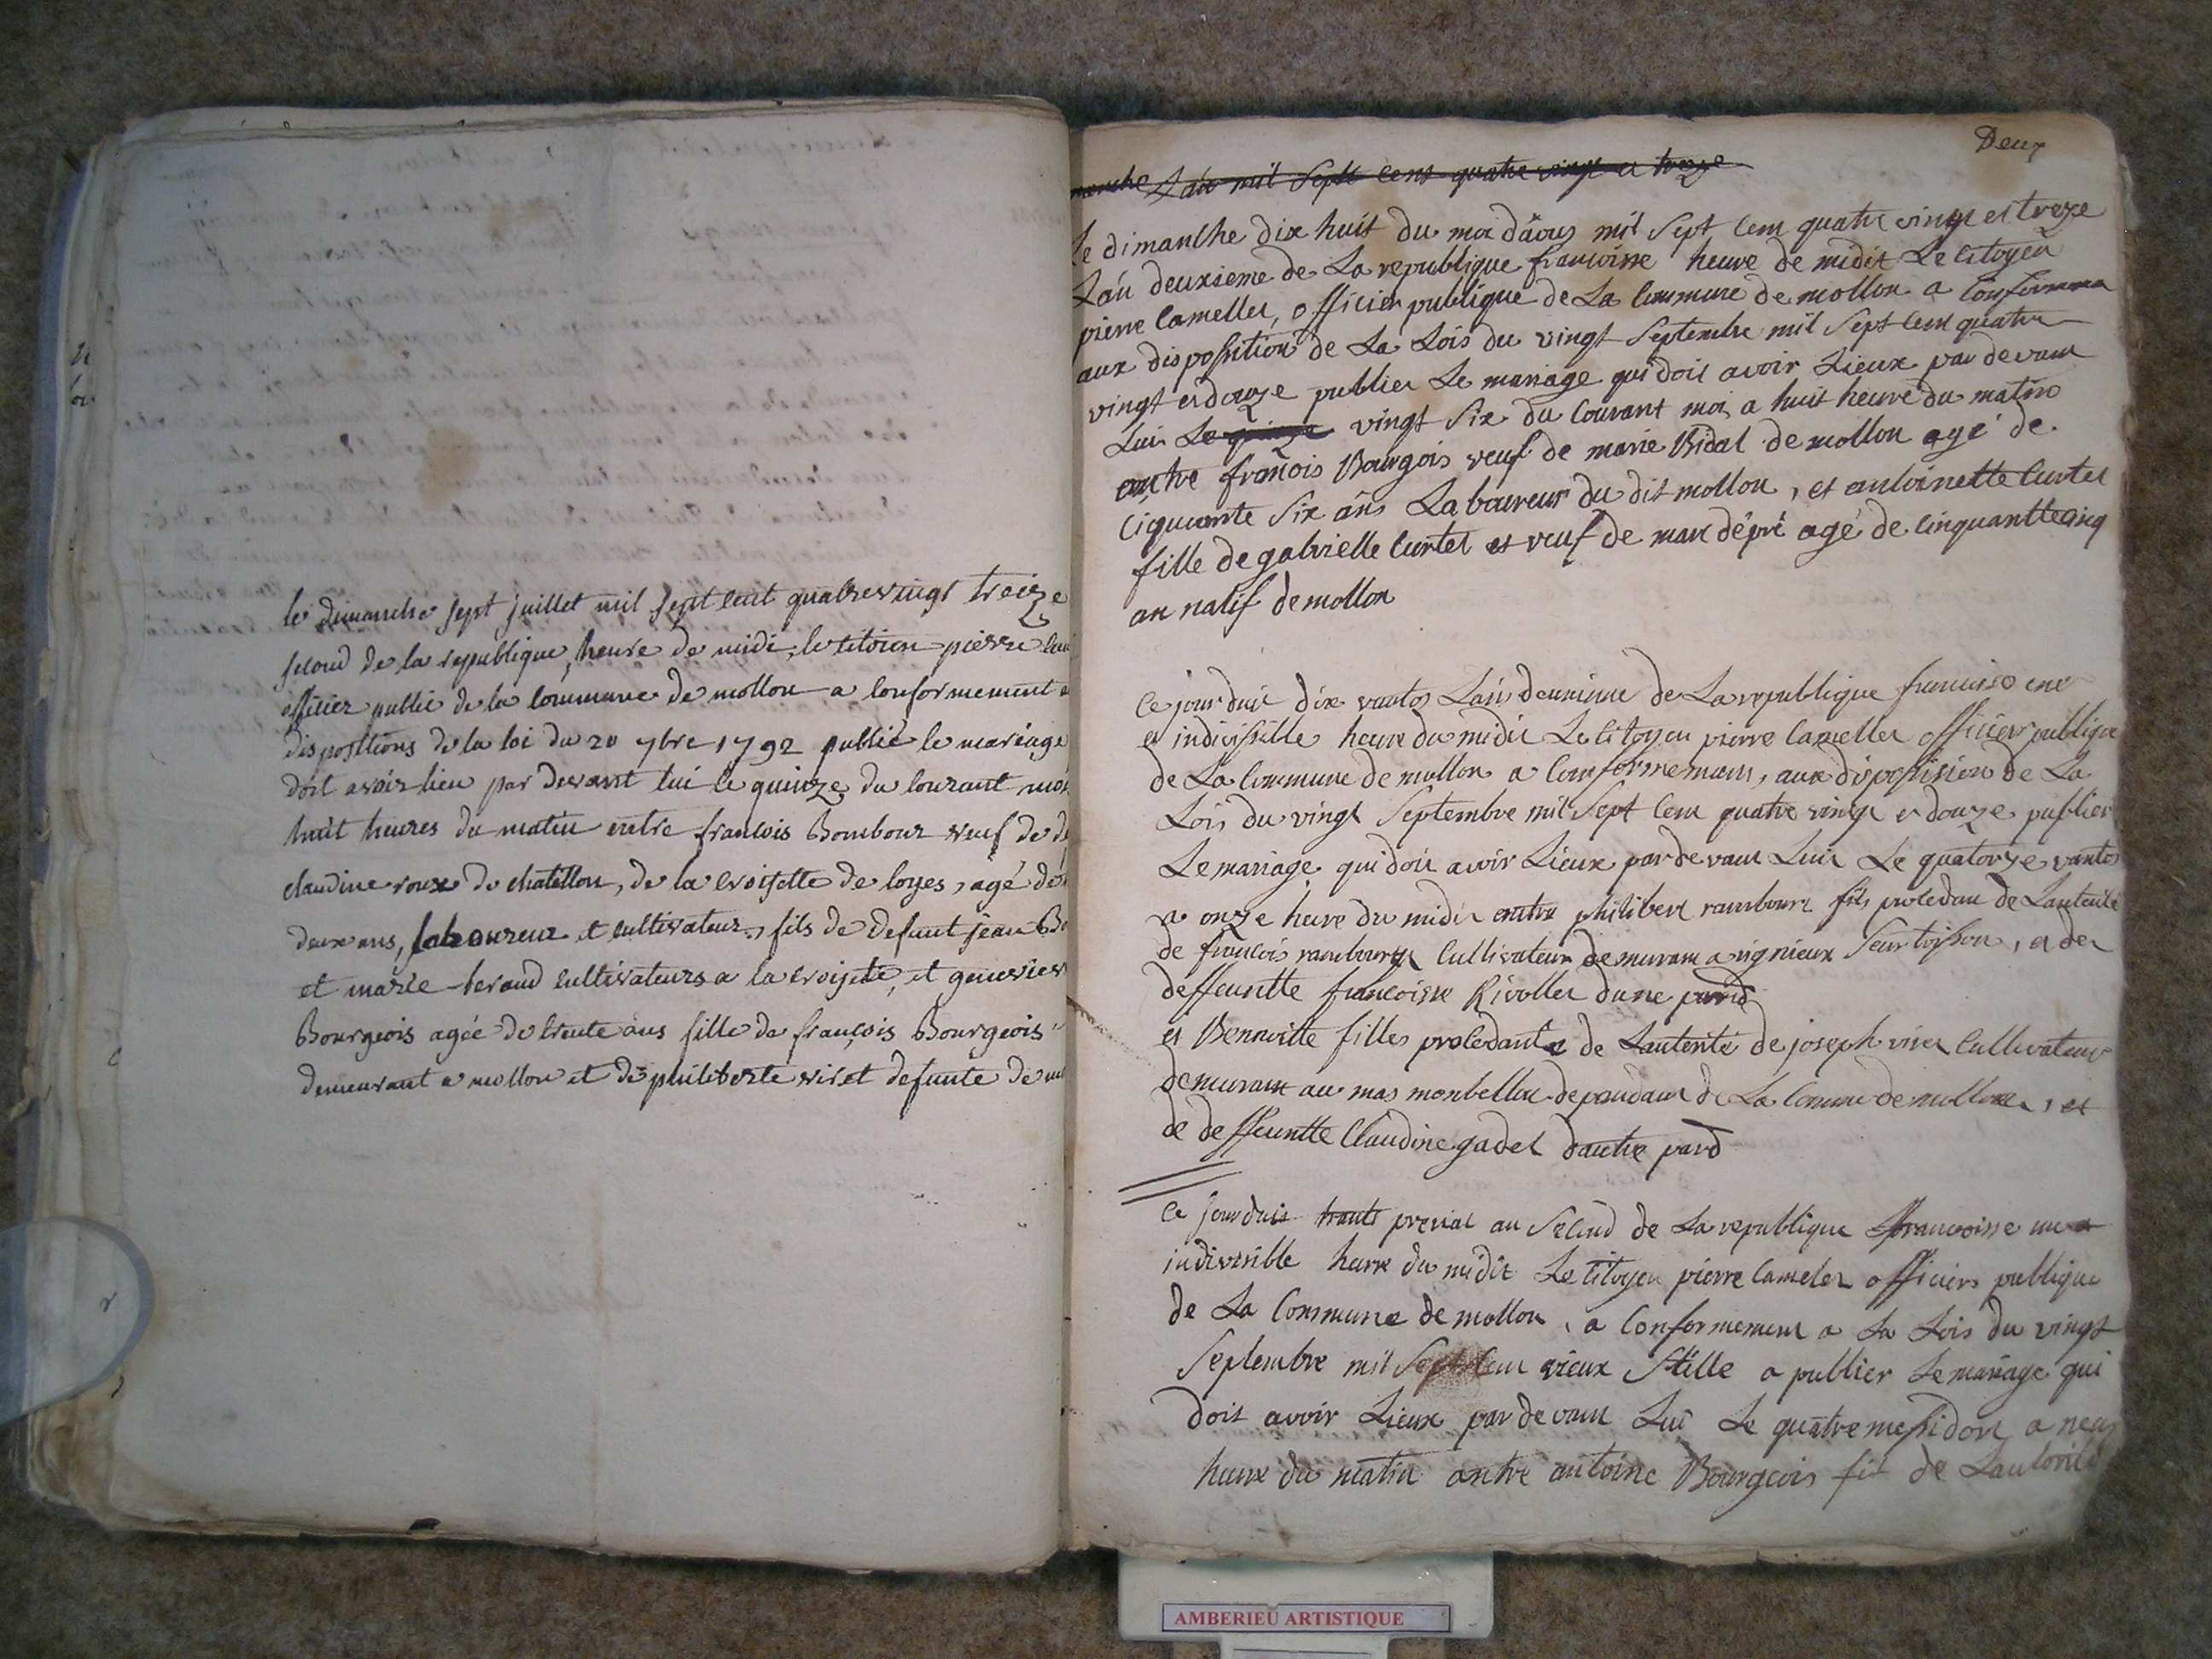 le dimanche sept juillet mil sept cent quatrevingt treize
second de la republique, heure de midi, le citoien pierre
officier public de la commune de mollon a conformement
dispositions de la loi du 20 7bre 1792 publié le mariage
doit avoir lieu par devant lui le quinze du courant mois
huit heures du matin entre francois Bombour veuf de
claudine roux de chatillon, de la croisette de loyes, agé de
deux ans, laboureur et cultivateur, fils de defunt jean
et marie beraud cultivateurs a la croisete, et
Bourgeois agée de trente ans fille de francois Bourgeois
demeurant a mollon et de philiberte viret defunte de
Deux
L'an mil Sept cens quatre vingt et treze
Le dimanche dix huit du moi d'aous mil Sept Cem quatre vingt et treze
L'an deuxieme de La republique francoisse heure de midit Le Citoyen
pierre Cameller, officier publique de La Commune de mollon a Conformema
aux disposition de La Lois du vingt Septembre mil Sept Cem quatre
vingt et douze publier Le mariage qui doit avoir Lieux par devam
Lui Le quinze vingt Six du Courant moi a huit heure du matin
entre francois Bourgois veuf de marie Vidal de mollon agé de
Ciquante Six ans Laboureur du dit mollon, et antoinette Curtet
fille de gabrielle Curtet et veuf de marc dépré agé de Cinquantte cinq
an natif de mollon
Ce jourduit dix vantos L'an deuxieme de La republique francoise une
et indivissible heure du midit Le Citoyen pierre Cameller officier publique
de La Commune de mollon a Conformemam, aux disposision de La
Lois du vingt Septembre mil Sept Cem quatre vingt et douze publier
Le mariage qui doit avoir Lieux par devam Lui Le quatorze vantos
a onze heure du midit entre philibert rambourt fils procedan de Lautorité
de francois rambourt Cultivateur demuram a rignieux Seur toisson, et de
deffeuntte francoisse Rivollet dune pard
et Bennoitte filles procedante de Lautorité de joseph viret Cultivateur
demuram au mas monbellin depandam de La Comune de mollon, et
de deffeuntte Claudine gadet dautre pard
Ce jourduit trante prerial an Second de La republique francoisse une et
indivisible heure du midit Le Citoyen pierre Cameler officiers publique
de La Commune de mollon, a Conformement a La Lois du vingt
Septembre mil Sept Cem vieux Stille a publier Le mariage qui
doit avoir Lieux par devam Lui Le quatre messidor a neuf
heure du matin antre antoine Bourgeois fis de Lautorité
AMBERIEU ARTISTIQUE